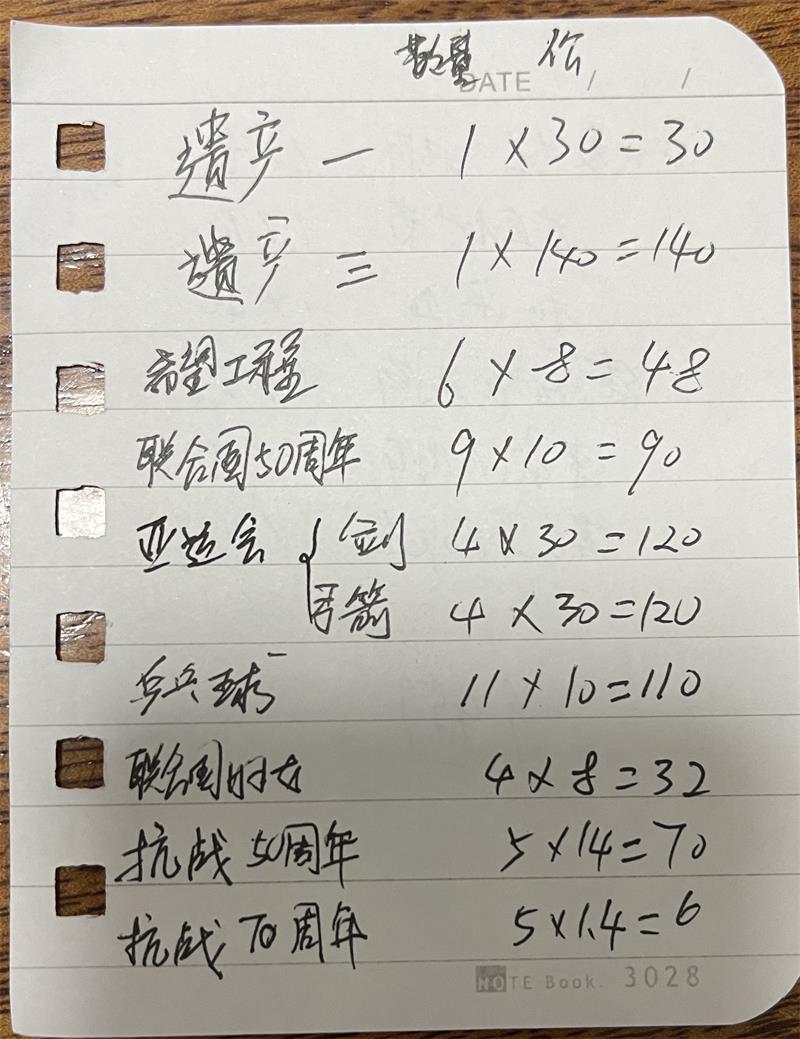 数量 价
DATE / /
遗产一 1×30=30
遗产三 1×140=140
希望工程 6×8=48
联合国50周年 9×10=90
亚运会 { 剑 4×30=120
弓箭 4×30=120
乒乓球 11×10=110
联合国妇女 4×8=32
抗战50周年 5×14=70
抗战70周年 5×1.4=6
NOTE Book. 3028